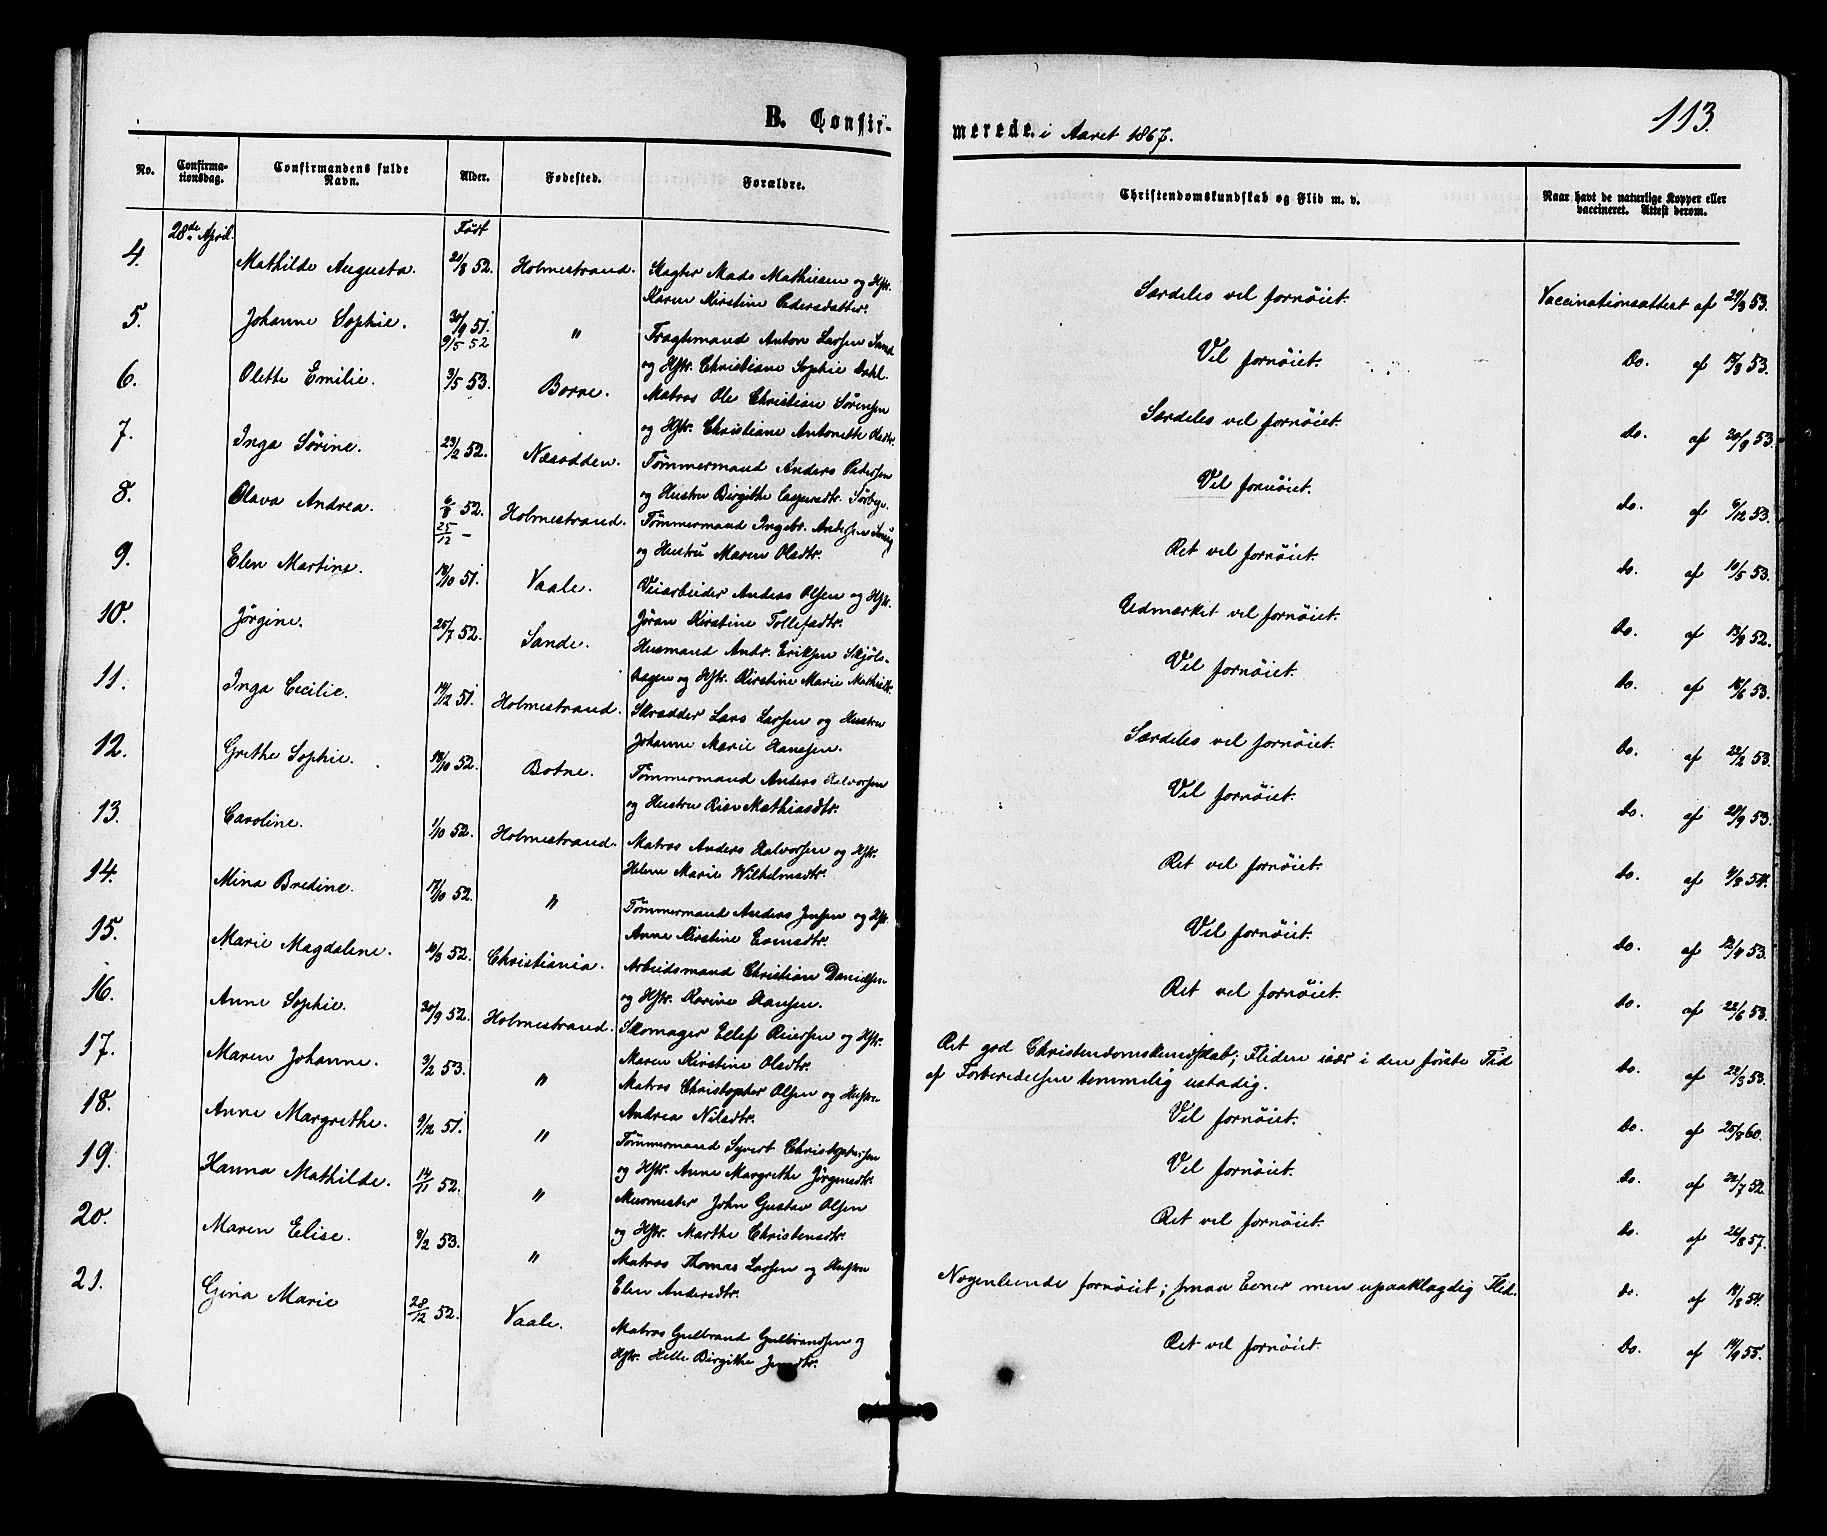 113.
B. Confirmerede i Aaret 1867.
No. Confirmationsdag. Confirmandens fulde Navn. Alder. Fødested. Forældre. Christendomskundskab og Flid m. v. Naar havt de naturlige Kopper eller vaccineret. Attest derom.
28de April. Født
4. Mathilde Augusta. 21/8 52. Holmestrand. Slagter Mads Mathiesen og Hstr. Karen Kirstine Pedersdatter. Særdeles vel fornøiet. Vaccinationsattest af 29/3 53.
5. Johanne Sophie. 30/9 51. 9/5 52 " Fragtemand Anton Larsen Sand og Hstr. Christiane Sophie Dahl. Vel fornøiet. Do. af 15/8 53.
6. Olette Emilie. 3/5 53. Borre. Matros Ole Christian Sørensen og Hstr. Christiane Antonette Olsdtr. Særdeles vel fornøiet. Do. af 20/9 53.
7. Inga Sørine. 29/2 52. Næsodden. Tømmermand Anders Pedersen og Hustru Birgithe Caspersdtr. Sørbye. Vel fornøiet. Do. af 6/12 53.
8. Olava Andrea. 6/8 52. 25/12 – Holmestrand. Tømmermand Ingebr. Andersen og Hustru Maren Olsdtr. Ret vel fornøiet. Do. af 10/5 53.
9. Elen Martine. 18/10 51. Vaale. Veiarbeider Anders Olsen og Hstr. Jøran Kirstine Tollefsdtr. Udmærket vel fornøiet. Do. af 13/9 52.
10. Jørgine. 25/7 52. Sande. Husmand Andr. Eriksen Skjølshagen og Hstr. Kirstine Marie Mathisdtr. Vel fornøiet. Do. af 16/6 53.
11. Inga Cecilie. 19/12 51. Holmestrand. Skrædder Lars Larsen og Hustru Johanne Marie Hansen. Særdeles vel fornøiet. Do. af 22/2 53.
12. Grethe Sophie. 18/10 52. Botne. Tømmermand Anders Halvorsen og Hustru Mathiasdtr. Vel fornøiet. Do. af 28/9 53.
13. Caroline. 1/10 52. Holmestrand. Matros Anders Halvorsen og Hstr. Helene Marie Wilhelmsdtr. Ret vel fornøiet. Do. af 9/8 54.
14. Mina Bredine. 17/10 52. " Tømmermand Anders Jensen og Hstr. Anne Kirstine Evensdtr. Vel fornøiet. Do. af 12/4 53.
15. Marie Magdalene. 10/3 52. Christiania. Arbeidsmand Christian Danielsen og Hstr. Karine Hansen. Ret vel fornøiet. Do. af 22/6 53.
16. Anne Sophie. 30/9 52. Holmestrand. Skomager Ellef Reiersen og Hstr. Maren Kirstine Olsdtr. Ret god Christendomskundskab; Fliden især i den første Tid af Forberedelsen temmelig ustadig. Do. af 22/3 53.
17. Maren Johanne. 3/2 53. " Matros Christopher Olsen og Hustru Andrea Nilsdtr. Vel fornøiet. Do. af 25/8 60.
18. Anne Margrethe. 9/12 51. " Tømmermand Syvert Christophersen og Hstr. Anne Margrethe Jørgensdtr. Vel fornøiet. Do. af 22/7 52.
19. Hanna Mathilde. 14/11 52. " Muurmester John Gustav Olsen og Hstr. Marthe Christensdtr. Ret vel fornøiet. Do. af 26/8 57.
20. Maren Elise. 8/2 53. " Matros Thomas Larsen og Hustru Elen Andersdtr. Nogenlunde fornøiet; smaa Evner men upaaklagelig Flid. Do. af 19/8 54.
21. Gina Marie 28/12 52. Vaale. Matros Gulbrand Gulbrandsen og Hstr. Helle Birgithe Ret vel fornøiet. Do. af 14/9 55.